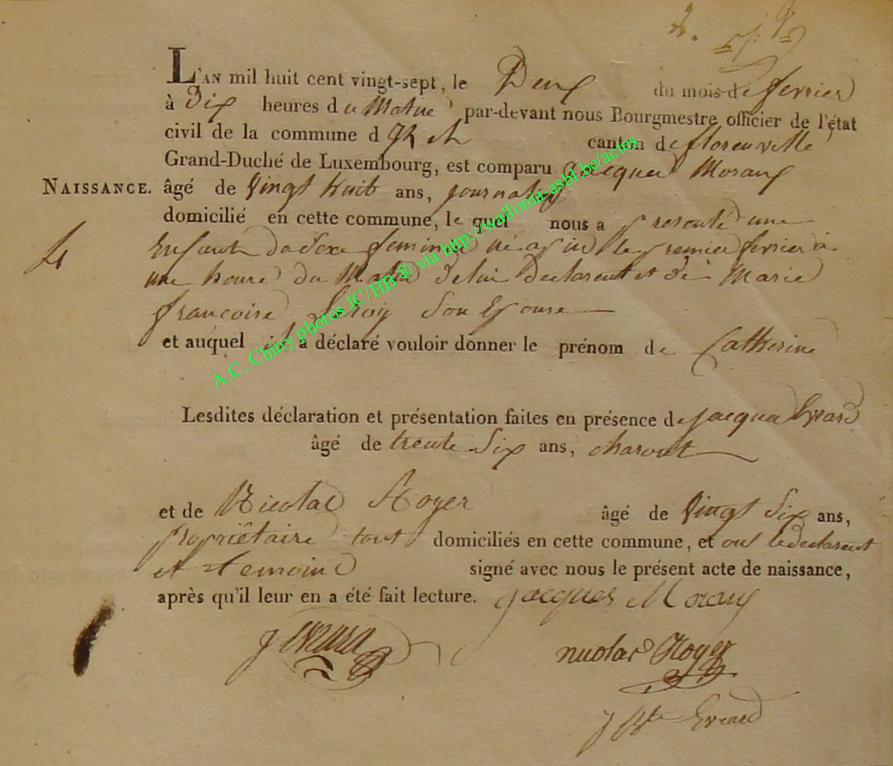 L'AN mil huit cent vingt-sept, le Deux du mois de fevrier
à Dix heures du Matin par-devant nous Bourgmestre officier de l'état
civil de la commune d canton de florenville
Grand-Duché de Luxembourg, est comparu Jacques Moraux
NAISSANCE. âgé de Vingt huit ans, journalier
domicilié en cette commune, le quel nous a presenté une
Enfant du Sexe feminin né le premier fevrier à
une heure du Matin de lui declarent et de Marie
françoise Leroy Son Epouse
et auquel il a déclaré vouloir donner le prénom de Catherine
Lesdites déclaration et présentation faites en présence de jacque Evrard
âgé de trente Six ans,
et de Nicolas Royer âgé de Vingt Six ans,
propriétaire tout domiciliés en cette commune, et ont le declarent
et temoins signé avec nous le présent acte de naissance,
après qu'il leur en a été fait lecture. jacques Moraux
J Evrard
nicolas Royer
J Bte Evrard
A.C. Chiny photos JC/HB @ via http://wallonia-asbl.be/actes